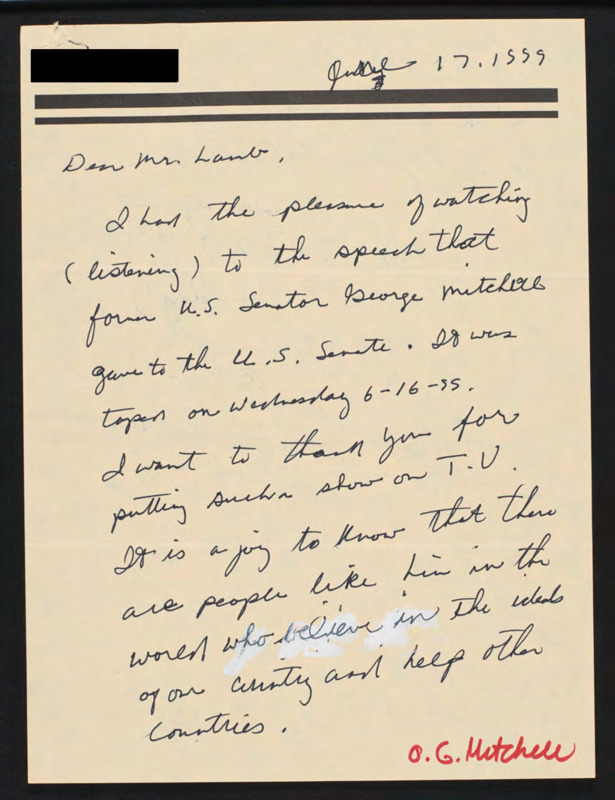 17.1999
Dear Mr. Lamb,
I had the pleasure of watching
(listening) to the speech that
former U.S. Senator George Mitchell
gave to the U.S. Senate. It was
taped on Wednesday 6-16-99.
I want to thank you for
putting such a show on T.V.
It is a joy to know that there
are people like him in the
world who believe in the ideals
of our country and help other
Countries.
O.G. Mitchell